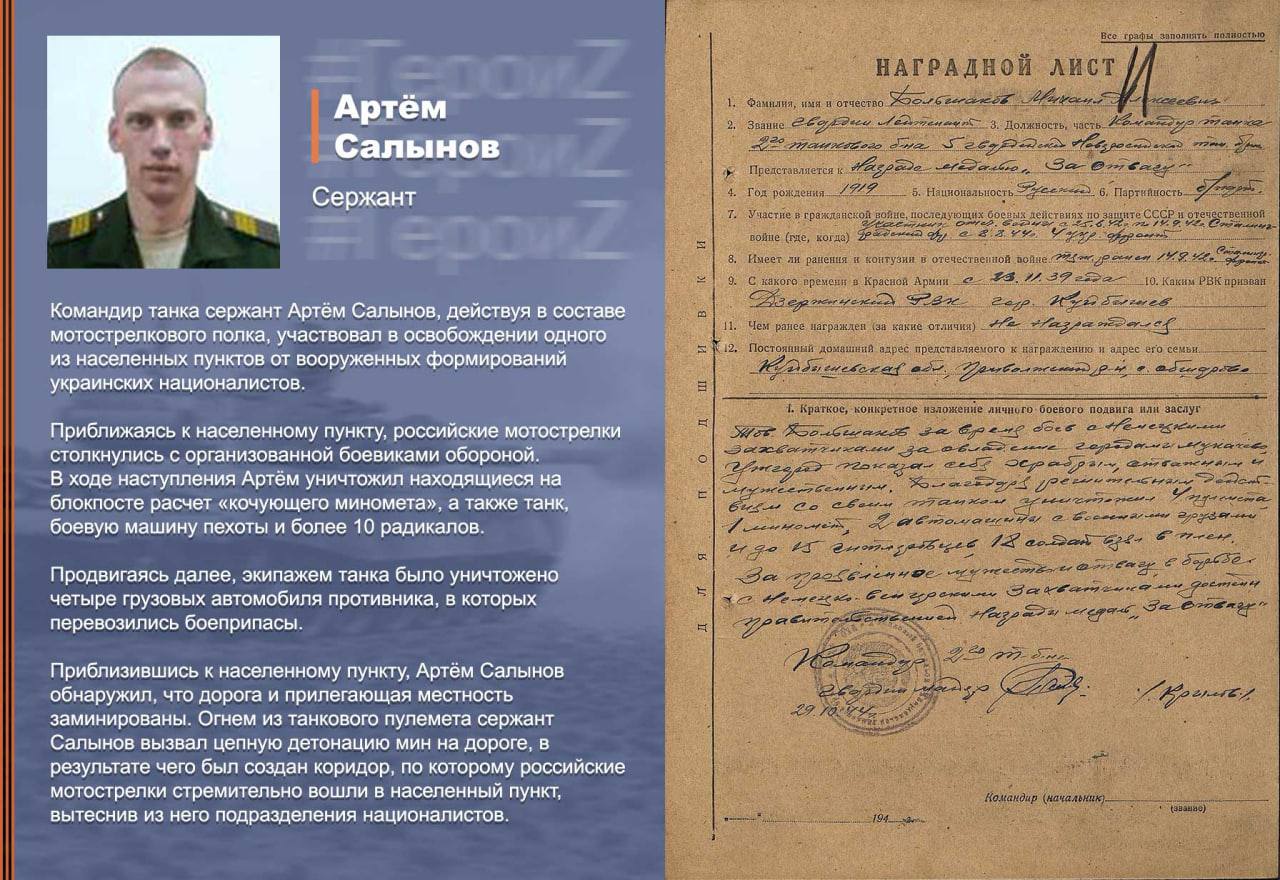 #ГероиZ
Артём
Салынов
#ГероиZ
Сержант
#ГероиZ
Командир танка сержант Артём Салынов, действуя в составе
мотострелкового полка, участвовал в освобождении одного
из населенных пунктов от вооруженных формирований
украинских националистов.
Приближаясь к населенному пункту, российские мотострелки
столкнулись с организованной боевиками обороной.
В ходе наступления Артём уничтожил находящиеся на
блокпосте расчет «кочующего миномета», а также танк,
боевую машину пехоты и более 10 радикалов.
Продвигаясь далее, экипажем танка было уничтожено
четыре грузовых автомобиля противника, в которых
перевозились боеприпасы.
Приблизившись к населенному пункту, Артём Салынов
обнаружил, что дорога и прилегающая местность
заминированы. Огнем из танкового пулемета сержант
Салынов вызвал цепную детонацию мин на дороге, в
результате чего был создан коридор, по которому российские
мотострелки стремительно вошли в населенный пункт,
вытеснив из него подразделения националистов.
Все графы заполнять полностью
НАГРАДНОЙ ЛИСТ
1. Фамилия, имя и отчество Большаков Михаил Алексеевич
2. Звание Гвардии Лейтенант 3. Должность, часть Командир танка
2го танкового б-на 5 гвардейской Новороссийской тан. бриг.
Представляется к Награде медалью „За Отвагу"
4. Год рождения 1919 5. Национальность Русский 6. Партийность б/парт.
7. Участие в гражданской войне, последующих боевых действиях по защите СССР и отечественной
участник отеч. войны с 25.6.42 по 14.9.42 Сталин-
войне (где, когда) градский фр. с 8.8.44 4 укр. фронт
8. Имеет ли ранения и контузии в отечественной войне тяж. ранен 14.9.42
9. С какого времени в Красной Армии с 23.11.39 года 10. Каким РВК призван
Дзержинский РВК гор. Куйбышев
11. Чем ранее награжден (за какие отличия) Не Награждался
12. Постоянный домашний адрес представляемого к награждению и адрес его семьи
Куйбышевская обл., Приволжский р-н, с. Обшаровка
I. Краткое, конкретное изложение личного боевого подвига или заслуг
Тов. Большаков за время боев с Немецкими
захватчиками за овладение городами Мукачево,
Ужгород показал себя храбрым, отважным и
мужественным. Благодаря решительным действ-
иям со своим танком уничтожил 4 пулемета
1 миномет, 2 автомашины с военными грузами
и до 15 гитлеровцев 18 солдат взял в плен.
За проявленное мужество и отвагу в борьбе
с Немецко-Венгерскими Захватчиками достоин
правительственной Награды медаль „За Отвагу"
Командир 2го т-б-на
гвардии майор /Крылов/
29.10.44 г.
Командир (начальник)
(звание)
194
ДЛЯ ПОДШИВКИ